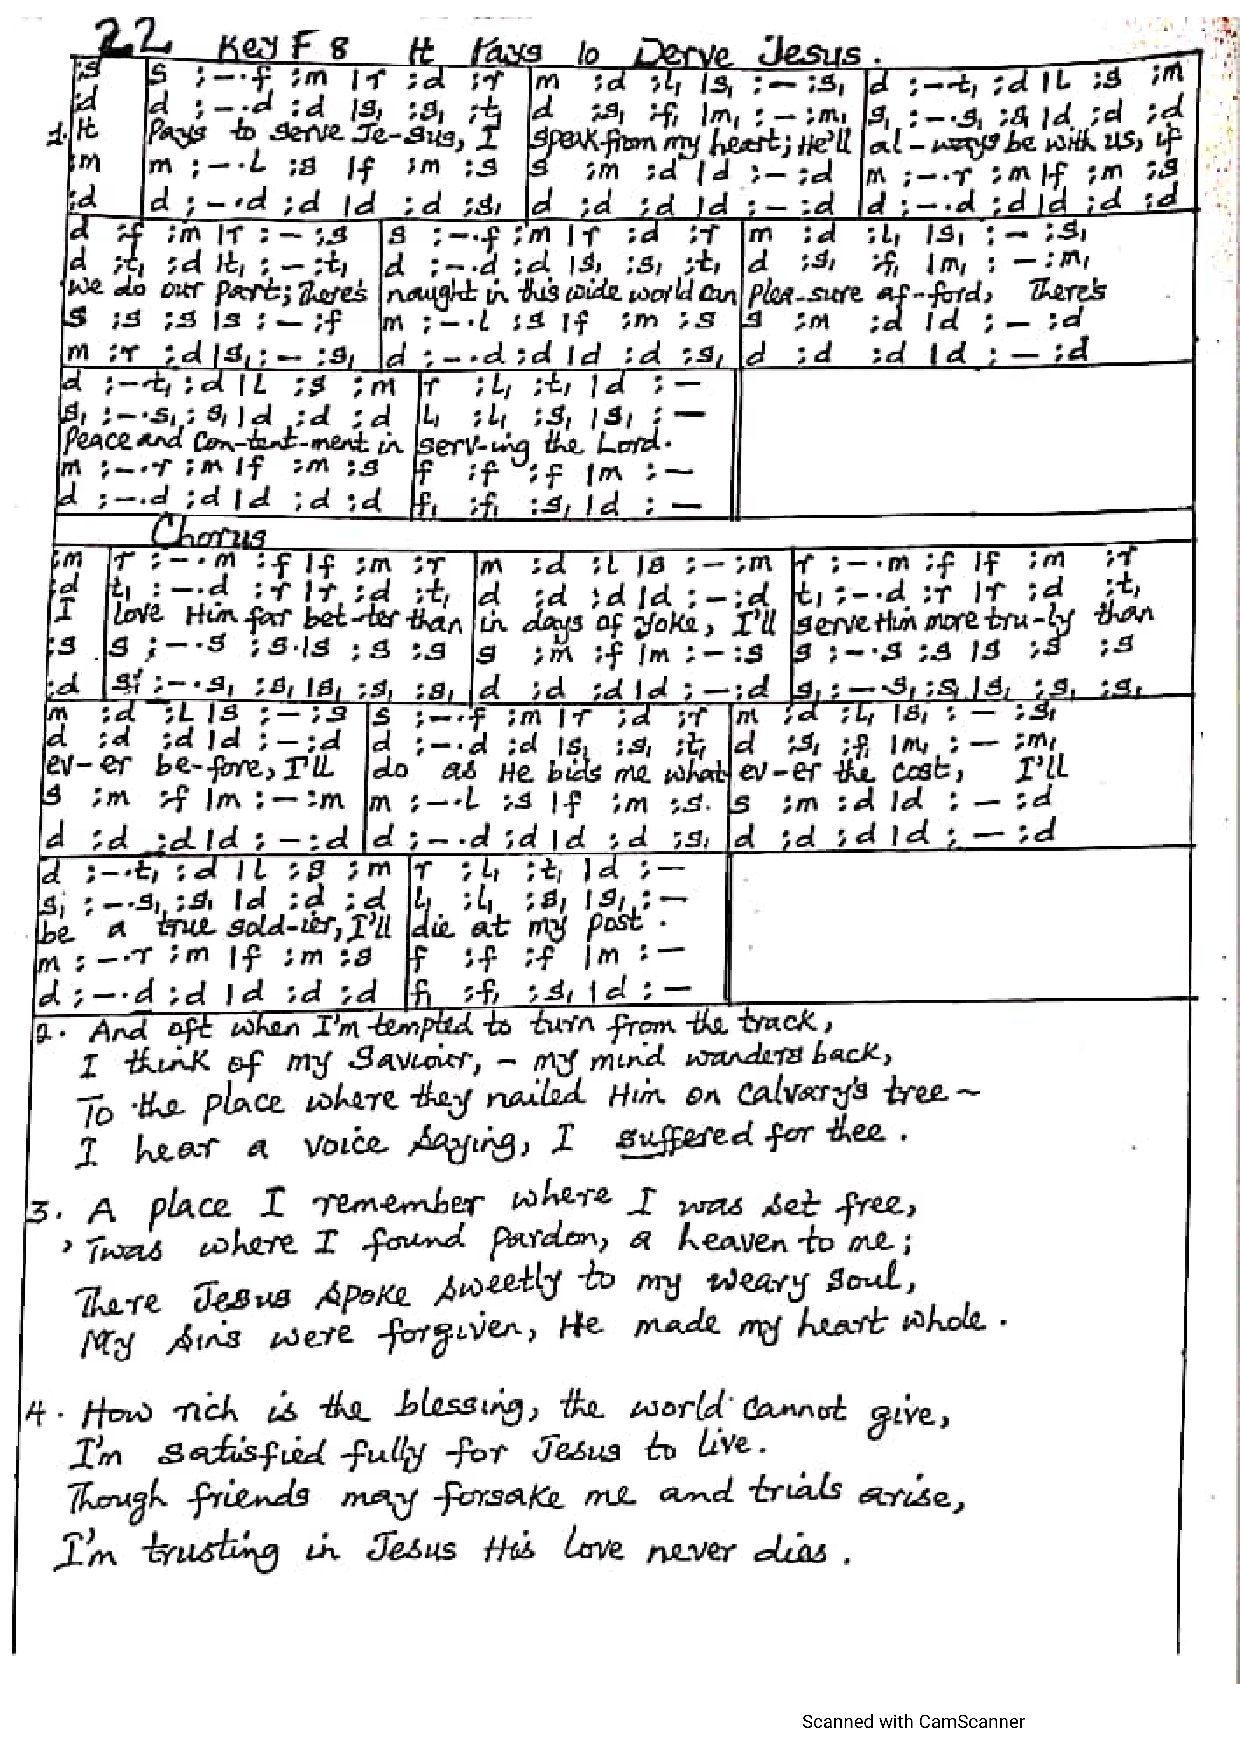 22 Key F 8 It Pays to Serve Jesus.
:s | s :-.f :m |r :d :r | m :d :l₁ |s₁ :- :s₁ | d :-.t₁ :d |L :s :m
:d | d :-.d :d |s₁ :s₁ :t₁ | d :s₁ :f₁ |m₁ :- :m₁ | s₁ :-.s₁ :s₁ |d :d :d
1. It Pays to serve Je-sus, I speak from my heart; He'll al-ways be with us, if
:m | m :-.L :s |f :m :s | s :m :d |d :- :d | m :-.r :m |f :m :s
:d | d :-.d :d |d :d :s₁ | d :d :d |d :- :d | d :-.d :d |d :d :d
d :f :m |r :- :s | s :-.f :m |r :d :r | m :d :l₁ |s₁ :- :s₁
d :t₁ :d |t₁ :- :t₁ | d :-.d :d |s₁ :s₁ :t₁ | d :s₁ :f₁ |m₁ :- :m₁
we do our part; There's naught in this wide world can plea-sure af-ford, There's
s :s :s |s :- :f | m :-.l :s |f :m :s | s :m :d |d :- :d
m :r :d |s₁ :- :s₁ | d :-.d :d |d :d :s₁ | d :d :d |d :- :d
d :-t₁ :d |L :s :m | r :L₁ :t₁ |d :-
s₁ :-.s₁ :s₁ |d :d :d | L₁ :L₁ :s₁ |s₁ :-
Peace and Con-tent-ment in serv-ing the Lord.
m :-.r :m |f :m :s | f :f :f |m :-
d :-.d :d |d :d :d | f₁ :f₁ :s₁ |d :-
Chorus
:m | r :-.m :f |f :m :r | m :d :l |s :- :m | r :-.m :f |f :m :r
:d | t₁ :-.d :r |r :d :t₁ | d :d :d |d :- :d | t₁ :-.d :r |r :d :t₁
I love Him far bet-ter than in days of yoke, I'll serve Him more tru-ly than
:s | s :-.s :s.|s :s :s | s :m :f |m :- :s | s :-.s :s |s :s :s
:d | s₁ :-.s₁ :s₁ |s₁ :s₁ :s₁ | d :d :d |d :- :d | s₁ :-.s₁ :s₁ |s₁ :s₁ :s₁
m :d :L |s :- :s | s :-.f :m |r :d :r | m :d :l₁ |s₁ :- :s₁
d :d :d |d :- :d | d :-.d :d |s₁ :s₁ :t₁ | d :s₁ :f₁ |m₁ :- :m₁
ev-er be-fore, I'll do as He bids me what ev-er the cost, I'll
s :m :f |m :- :m | m :-.L :s |f :m :s. | s :m :d |d :- :d
d :d :d |d :- :d | d :-.d :d |d :d :s₁ | d :d :d |d :- :d
d :-.t₁ :d |L :s :m | r :L₁ :t₁ |d :-
s₁ :-.s₁ :s₁ |d :d :d | L₁ :L₁ :s₁ |s₁ :-
be a true sold-ier, I'll die at my post.
m :-.r :m |f :m :s | f :f :f |m :-
d :-.d :d |d :d :d | f₁ :f₁ :s₁ |d :-
2. And oft when I'm tempted to turn from the track,
I think of my Saviour, – my mind wanders back,
To the place where they nailed Him on Calvary's tree ~
I hear a voice saying, I suffered for thee.
3. A place I remember where I was set free,
'Twas where I found Pardon, a heaven to me;
There Jesus spoke sweetly to my weary soul,
My sins were forgiven, He made my heart whole.
4. How rich is the blessing, the world cannot give,
I'm satisfied fully for Jesus to live.
Though friends may forsake me and trials arise,
I'm trusting in Jesus His love never dies.
Scanned with CamScanner